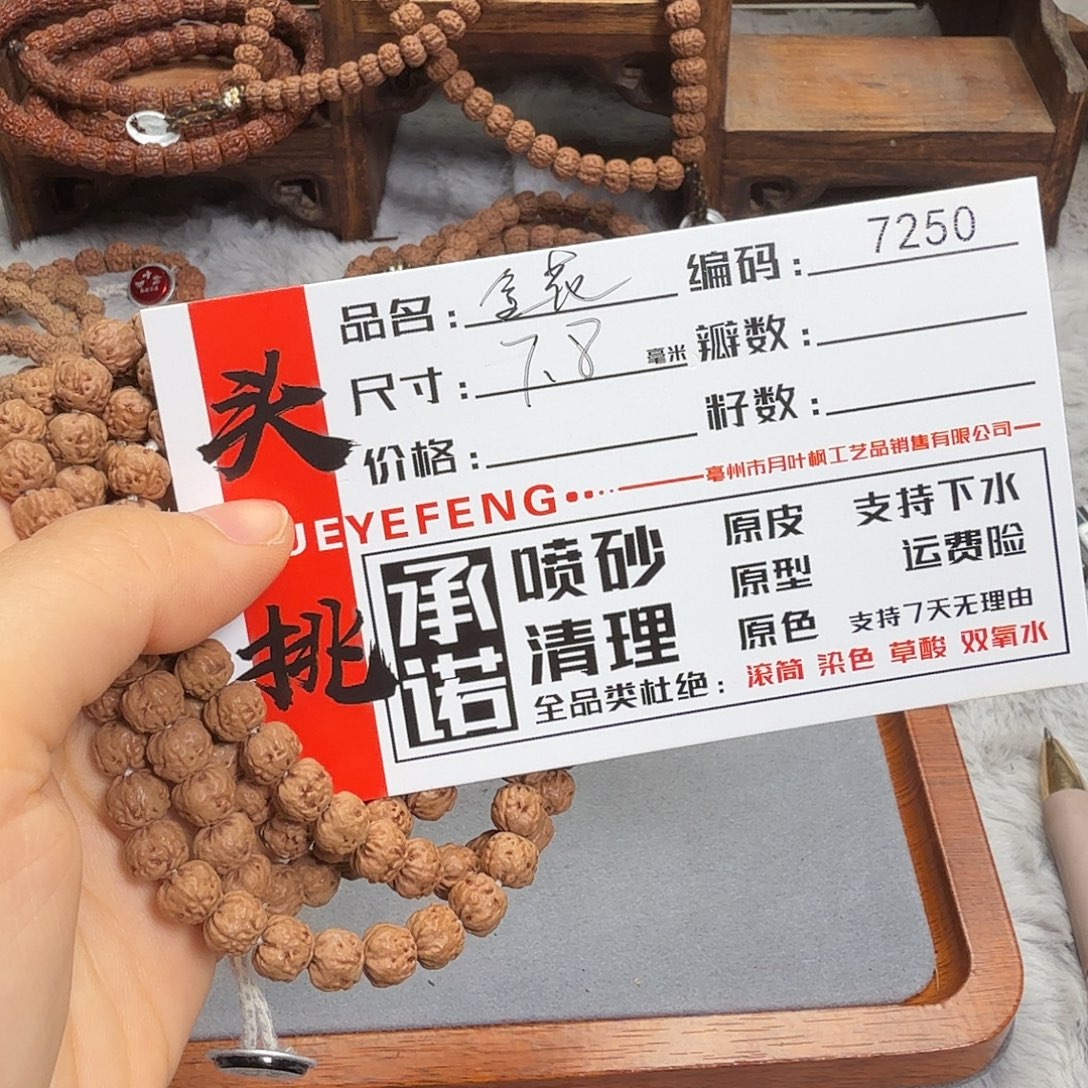 头挑
品名：金花 编码：7250
尺寸：7.8 毫米 瓣数：
价格： 籽数：
UEYEFENG 亳州市月叶枫工艺品销售有限公司
承诺
喷砂 原皮 支持下水
清理 原型 运费险
原色 支持7天无理由
全品类杜绝：滚筒 染色 草酸 双氧水